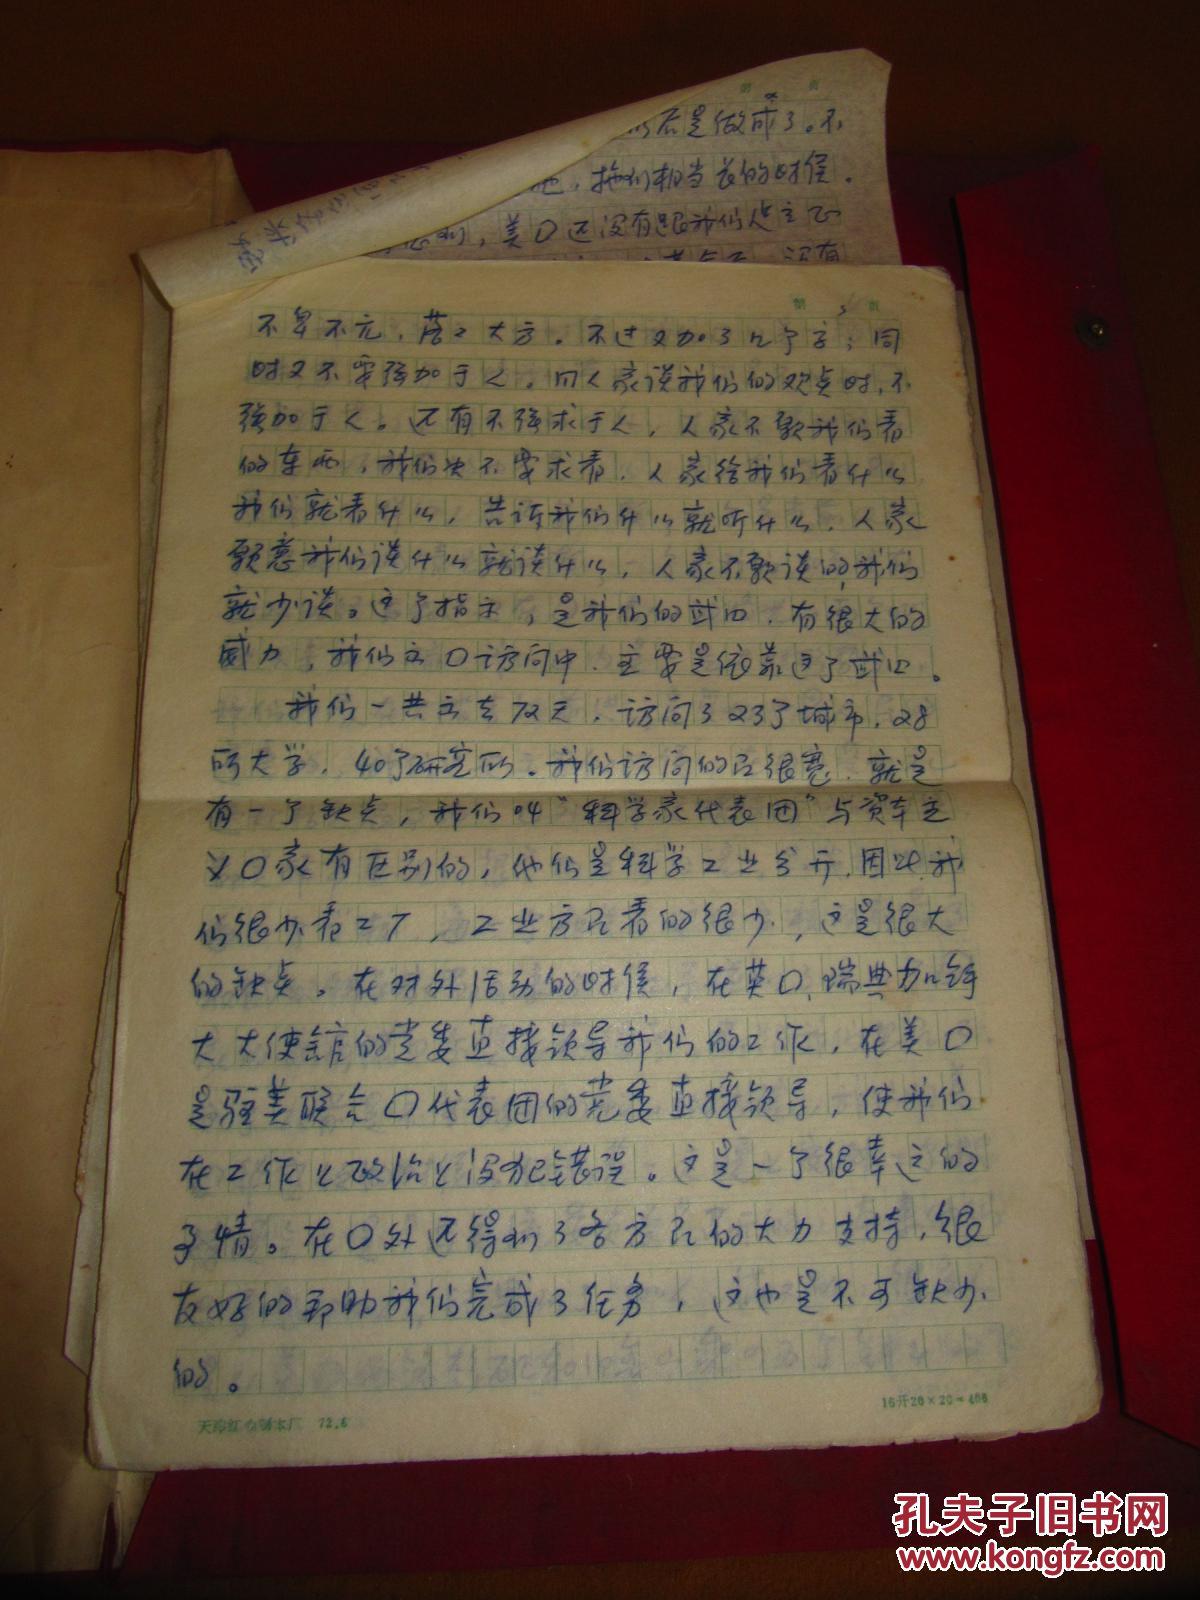 后是做成了。不
拖们相当长的时候。
美囗还没有跟我们建立正
第 5 页
不卑不亢，落之大方。不过又加了几个字；同
时又不要强加于人。向人家谈我们的观点时，不
强加于人。还有不强求于人，人家不歌我们看
的东西，我们决不要求看，人家给我们看什么
我们就看什么，告诉我们什么就听什么，人家
愿意我们谈什么就谈什么，人家不愿谈的我们
就少谈。这个指示，是我们的武四，有很大的
威力，我们出囗访问中，主要是依靠这个武四。
我们一共出去72天，访问了23个城市，28
所大学，40个研究所。我们访问的面很宽，就是
有一个缺点，我们叫“科学家代表团”与资本主
义囗家有区别的，他们是科学工业分开，因此我
们很少看工厂，工业方面看的很少，这是很大
的缺点。在对外活动的时候，在英囗、瑞典加拿
大大使馆的党委直接领导我们的工作，在美囗
是驻美联合囗代表团的党委直接领导，使我们
在工作上政治上没犯错误。这是一个很幸运的
事情。在囗外还得到了各方面的大力支持，很
友好的帮助我们完成了任务，这也是不可缺少
的。
天津红 制本厂 72.6
16开20×20=400
孔夫子旧书网
www.kongfz.com